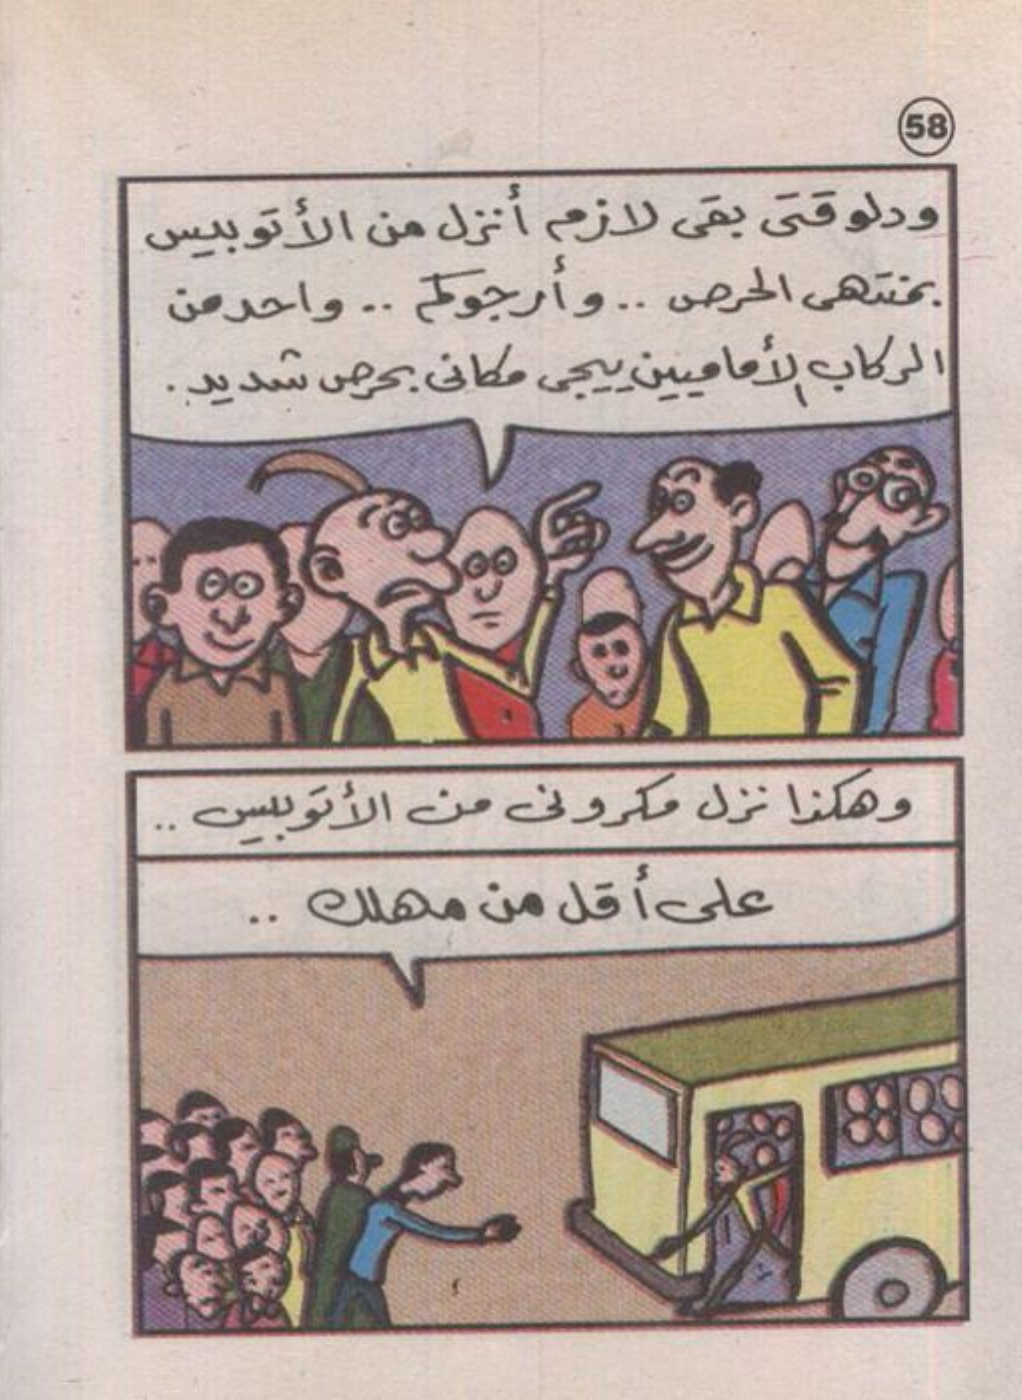 58
ودلوقتى بقى لازم أنزل من الأتوبيس
بمنتهى الحرص .. وأرجوكم .. واحد من
الركاب الأماميين ييجى مكانى بحرص شديد .
وهكذا نزل مكرونى من الأتوبيس ..
على أقل من مهلك ..